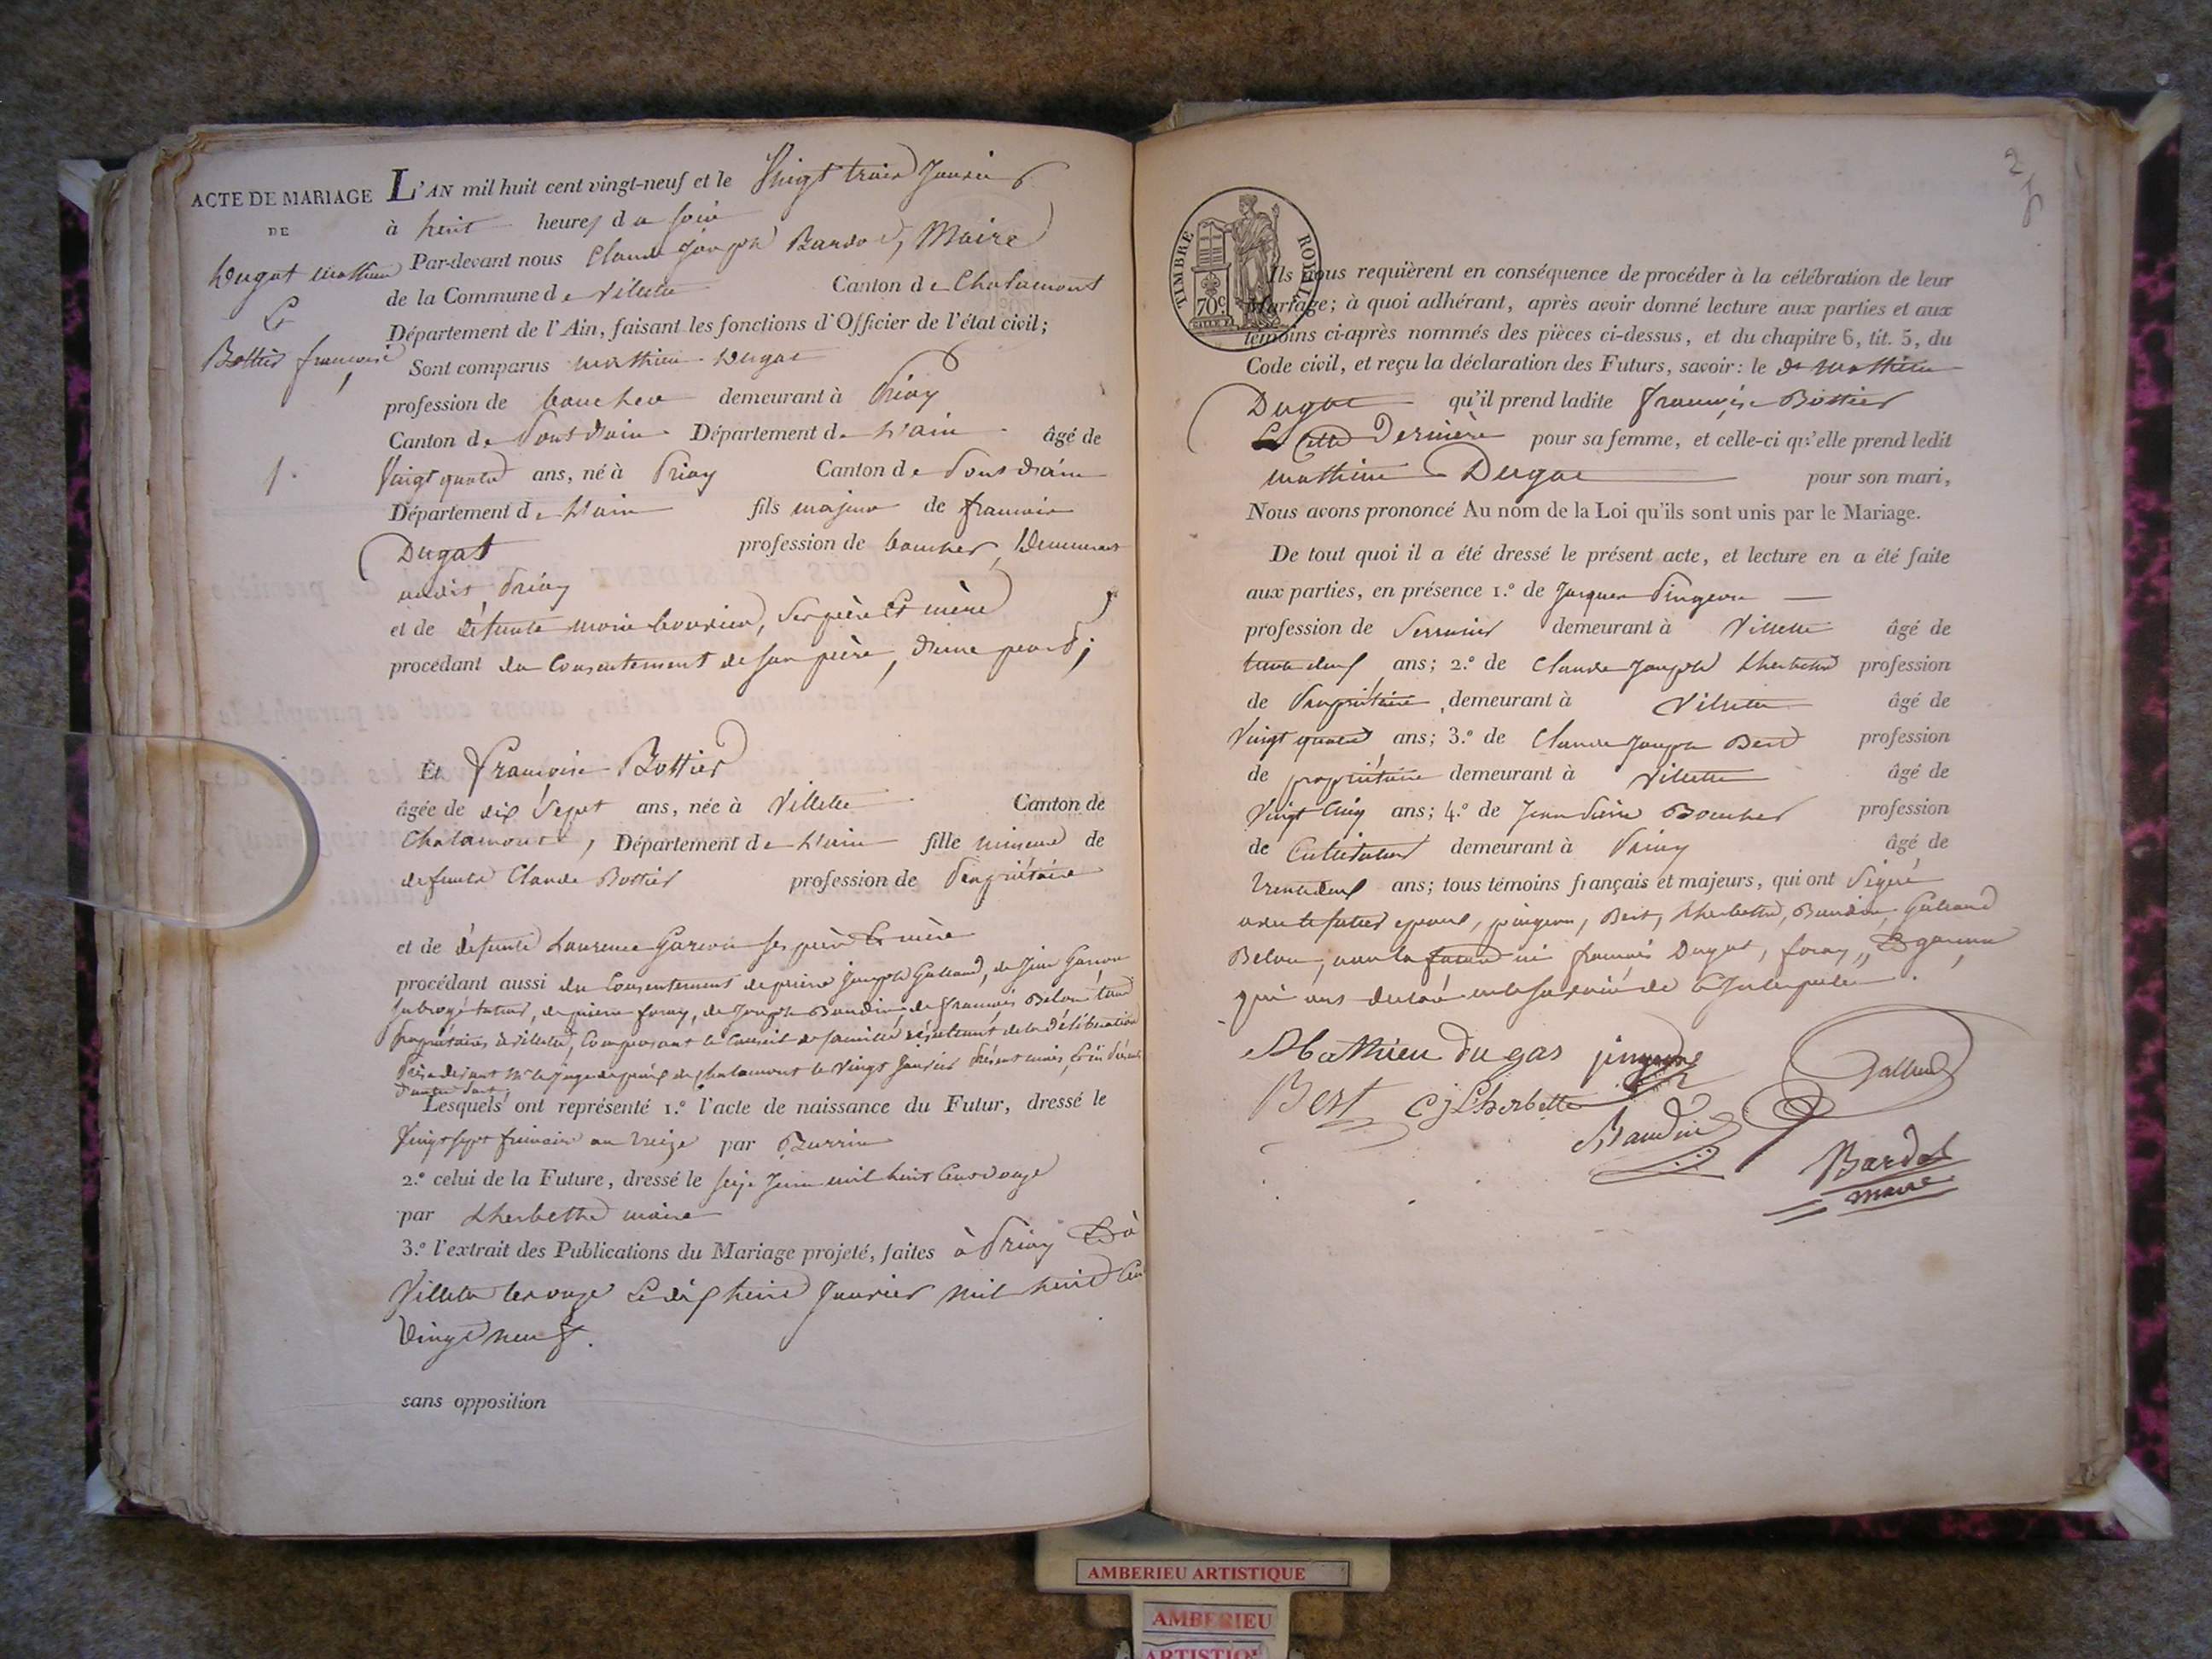 ACTE DE MARIAGE
DE
Dugat Mathieu
Et
Bottier françoise
1.
L'AN mil huit cent vingt-neuf et le Vingt trois Janvier
à huit heures du soir
Par-devant nous Claude Joseph Bardot, Maire
de la Commune de Villette Canton de Chalamont
Département de l'Ain, faisant les fonctions d'Officier de l'état civil;
Sont comparus Mathieu Dugat
profession de boucher demeurant à Priay
Canton de Pont d'ain Département de L'ain âgé de
Vingt quatre ans, né à Priay Canton de Pont d'ain
Département de L'ain fils majeur de françois
Dugat profession de boucher, Demeurant
audit Priay
et de défunte Marie, Ses père Et mère
procédant du Consentement de son père, d'une part;
Et françoise Bottier
âgée de dix Sept ans, née à Villette Canton de
Chalamont, Département de L'ain fille mineure de
defunt Claude Bottier profession de Propriétaire
et de défunte Laurence Garçon ses père Et mère
procédant aussi du Consentement de pierre Joseph Galland, de Jean Garçon
Subrogé tuteur, de pierre foray, de Joseph Baudin, de françois Belon tous
propriétaires à Villette, Composant le Conseil de famille résultant de la Délibération
prise devant Mr le Juge de paix de Chalamont le Vingt Janvier présent mois,
D'autre part,
Lesquels ont représenté 1.º l'acte de naissance du Futur, dressé le
Vingt sept frimaire an treize par
2.º celui de la Future, dressé le seize Juin mil huit Cent douze
par Lherbette maire
3.º l'extrait des Publications du Mariage projeté, faites à Priay Et à
Villette les onze Et dix huit Janvier mil huit Cent
Vingt neuf.
sans opposition
2
TIMBRE ROYAL
70c.
Ils nous requièrent en conséquence de procéder à la célébration de leur
Mariage; à quoi adhérant, après avoir donné lecture aux parties et aux
témoins ci-après nommés des pièces ci-dessus, et du chapitre 6, tit. 5, du
Code civil, et reçu la déclaration des Futurs, savoir: le dt Mathieu
Dugat qu'il prend ladite françoise Bottier
Cette Dernière pour sa femme, et celle-ci qu'elle prend ledit
Mathieu Dugat pour son mari,
Nous avons prononcé Au nom de la Loi qu'ils sont unis par le Mariage.
De tout quoi il a été dressé le présent acte, et lecture en a été faite
aux parties, en présence 1.º de Jacques Pingeon
profession de Serrurier demeurant à Villette âgé de
ans; 2.º de Claude Joseph Lherbette profession
de Propriétaire demeurant à Villette âgé de
Vingt quatre ans; 3.º de Claude Joseph Best profession
de propriétaire demeurant à Villette âgé de
Vingt Cinq ans; 4.º de Jean Pierre Boucher profession
de Cultivateur demeurant à Priay âgé de
ans; tous témoins français et majeurs, qui ont Signé
avec le futur époux, pingeon, Best, Lherbette, Baudin, Galland
Belon, non la future ni françois Dugat, foray, Et garçon
qui ont déclaré ne le savoir de ce Interpelés.
Mathieu dugas pingeon
Galland
Best C j Lherbette
Baudin
Bardot
maire
AMBERIEU ARTISTIQUE
AMBERIEU
ARTISTIQUE